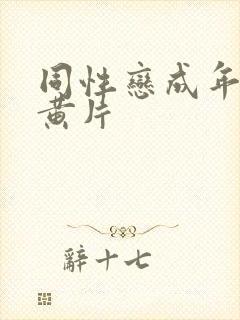 同性戀成年
黃片
辭十七